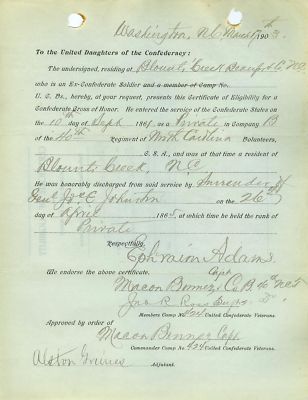 Washington, N.C. March 7th 1903.
To the United Daughters of the Confederacy:
The undersigned, residing at Blounts Creek Beaufort Co N.C.
who is an Ex-Confederate Soldier and a member of Camp No.
U. C. Vs., hereby, at your request, presents this Certificate of Eligibility for a
Confederate Cross of Honor. He entered the service of the Confederate States on
the 10th day of Sept 1861 as a Private in Company B
of the 40th Regiment of North Carolina Volunteers,
C. S. A., and was at that time a resident of
Blounts Creek, N.C.
He was honorably discharged from said service by Surrender of
Genl Jos E Johnston on the 26th
day of April 186, at which time he held the rank of
Private
Respectfully,
Ephraim Adams
We endorse the above certificate. Capt
Macon Bonner Co B 40th N.C.T.
Jas R Ross
Members Camp No. 424 United Confederate Veterans.
Approved by order of
Macon Bonner Capt
Commander Camp No. 424 United Confederate Veterans.
Alston Grimes
Adjutant.